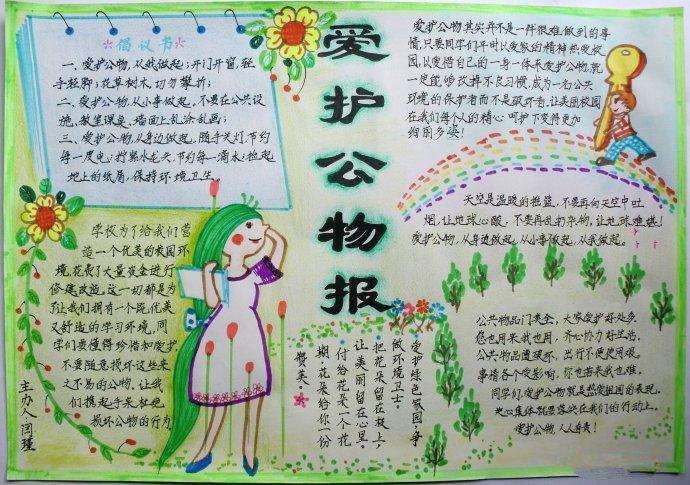 倡议书
一、爱护公物,从我做起;开门开窗,轻
手轻脚;花草树木,切勿攀折;
二、爱护公物,从小事做起,不要在公共设
施,教室课桌,墙面上乱涂乱画;
三、爱护公物,从身边做起,随手关灯,节约
每一度电;拧紧水龙头,节约每一滴水;捡起
地上的纸屑,保持环境卫生。
学校为了给我们营
造一个优美的校园环
境,花费了大量资金进行
修建改造,这一切都是为
了让我们拥有一个既优美
又舒适的学习环境,同
学们要懂得珍惜和爱护
不要随意损坏这些来
之不易的公物,让我
们携起手来杜绝
损坏公物的行为
主办人:闫瑾
爱护公物报
爱护公物其实并不是一件很难做到的事
情,只要同学们平时以爱家的精神热爱校
园,以爱惜自己的一身一体来爱护公物,就
一定能够改掉不良习惯,成为一名公共
环境的保护者而不是破坏者,让美丽校园
在我们每个人的精心呵护下变得更加
绚丽多姿!
天空是温暖的摇篮,不要再向天空中吐
烟,让地球心酸,不要再乱扔杂物,让地球难堪!
爱护公物,从身边做起,从小事做起,从我做起。
爱护绿色家园,争
做环境卫士。
把花朵留在枝上,
让美丽留在心里。
付给花朵一个花
期,花朵给你一份
赞美。
公共物品门类全,大家爱护好处多
您也用来我也用,齐心协力好生活。
公共物品遭破坏,出行不便使用艰,
事情各个受影响,你也苦来我也难。
同学们,爱护公物就是热爱祖国的表现,
关心集体就要落实在我们的行动上。
爱护公物,人人有责!